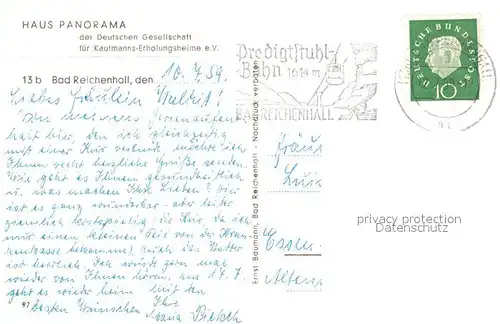 HAUS PANORAMA
der Deutschen Gesellschaft
für Kaufmanns-Erholungsheime e.V.
13b Bad Reichenhall, den 10.7.59.
Liebes Fräulein Waltrit!
Von meinem Ferienaufent
halt hier, den ich gleichzeitig
mit einer Kur verbinde, möchte ich
Ihnen recht herzliche Grüße senden.
Wie geht es Ihnen gesundheitlich
u. was machen Ihre Lieben? Hier
ist es ganz wunderbar - aber leider
ziemlich kostspielig die Kur, da ich
nur einen kleinen Teil von der Kran-
kenkasse bekomme. Auch das Wetter
ist herrlich. Ich würde gern mal
wieder von Ihnen hören, am 17.7.
geht es wieder heim. Mit den
besten Wünschen Ihr
97
Predigtstuhl-
Bahn
1614 m
BAD REICHENHALL
DEUTSCHE BUNDESPOST
10
Ernst Baumann, Bad Reichenhall - Nachdruck verboten
Essen
privacy protection
Datenschutz